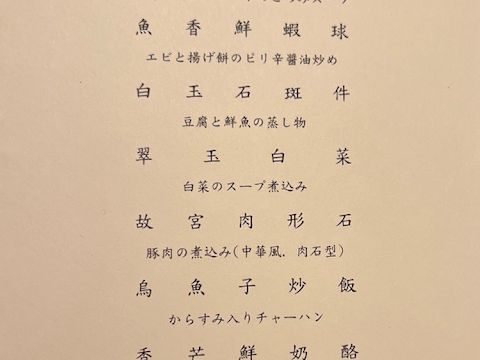 魚香鮮蝦球
エビと揚げ餅のピリ辛醤油炒め
白玉石斑件
豆腐と鮮魚の蒸し物
翠玉白菜
白菜のスープ煮込み
故宮肉形石
豚肉の煮込み(中華風．肉石型)
烏魚子炒飯
からすみ入りチャーハン
香芒鮮奶酪